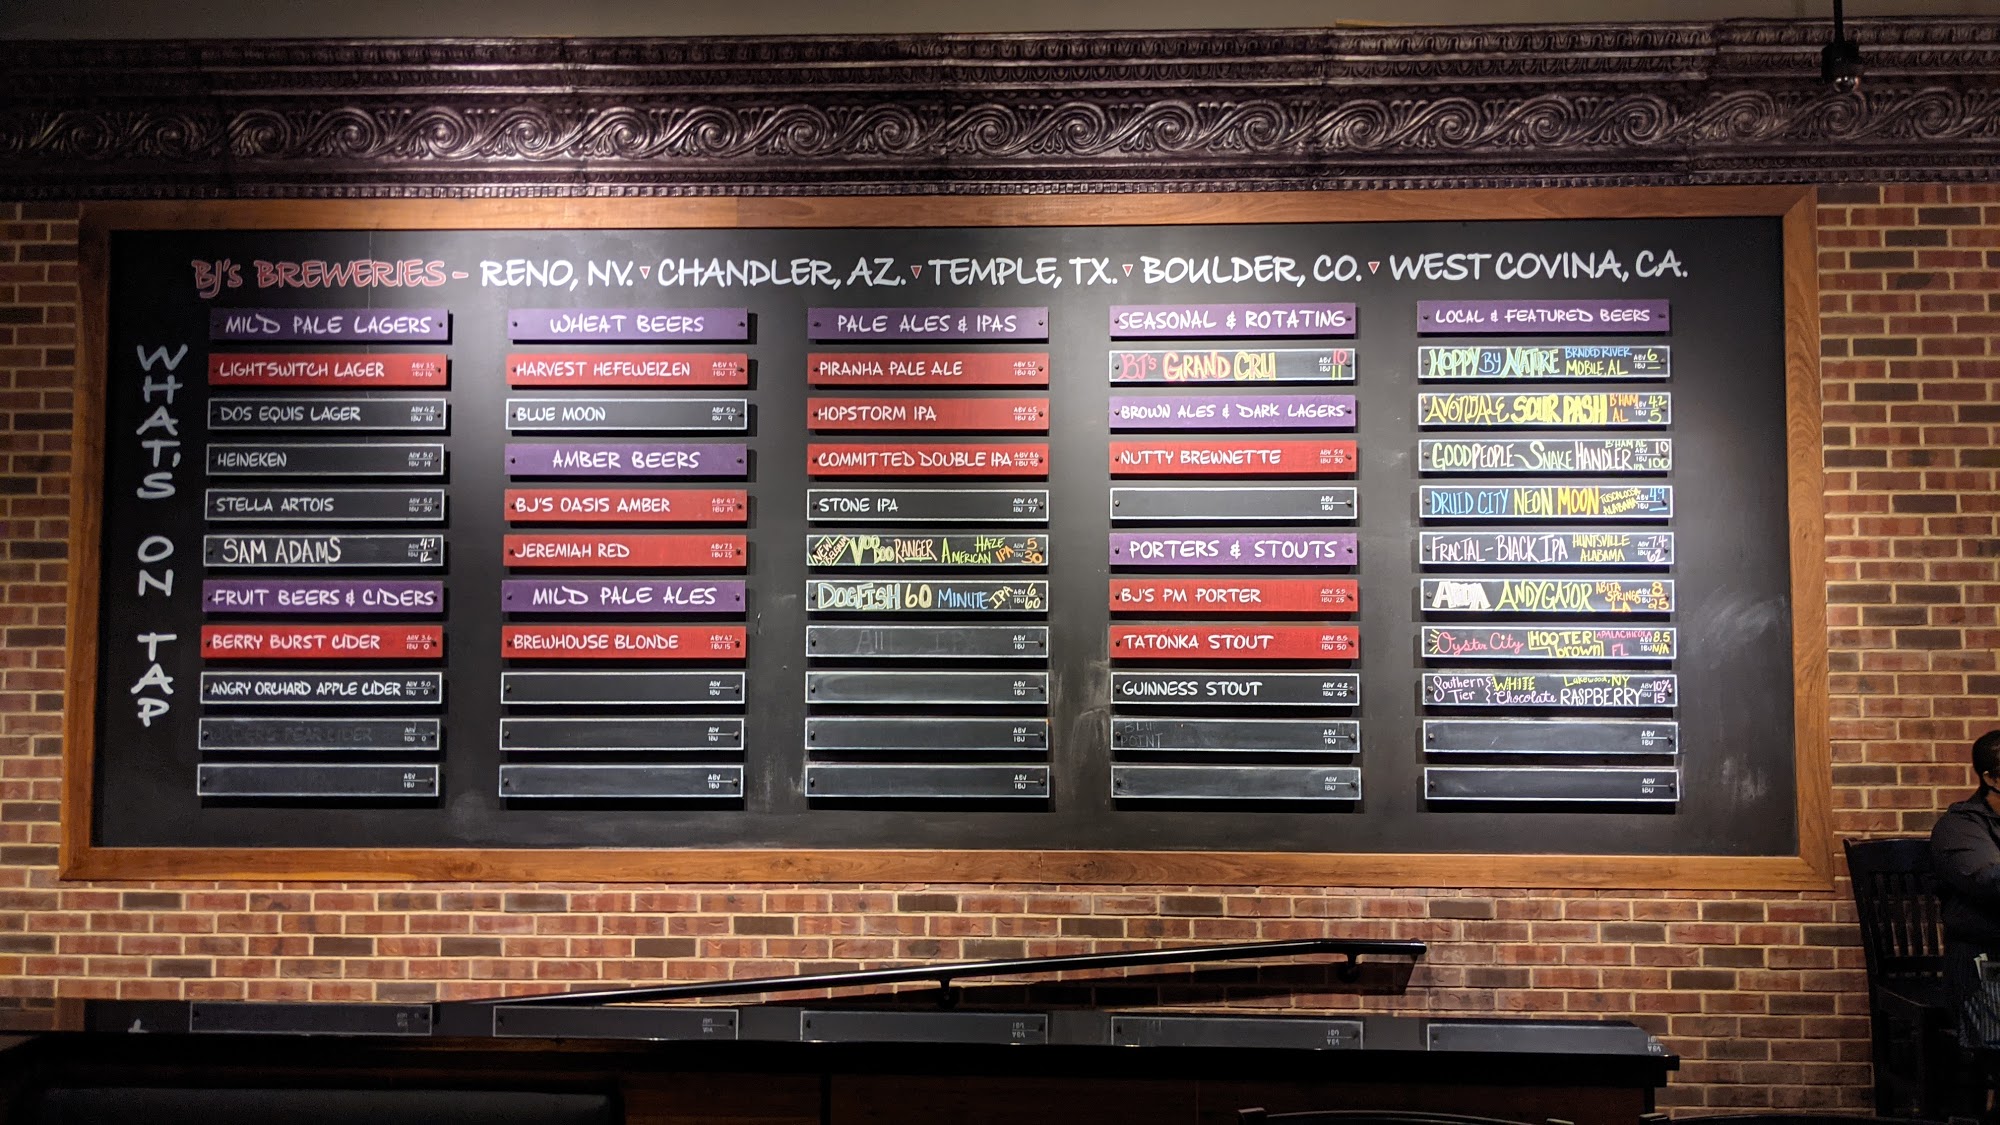 BJ's BREWERIES - RENO, NV. ▾ CHANDLER, AZ. ▾ TEMPLE, TX. ▾ BOULDER, CO. ▾ WEST COVINA, CA.
WHAT'S ON TAP
MILD PALE LAGERS
LIGHTSWITCH LAGER ABV 3.5 IBU 16
DOS EQUIS LAGER ABV 4.2 IBU 10
HEINEKEN ABV 5.0 IBU 19
STELLA ARTOIS ABV 5.2 IBU 30
SAM ADAMS 4.7 12
FRUIT BEERS & CIDERS
BERRY BURST CIDER ABV IBU 0
ANGRY ORCHARD APPLE CIDER ABV 5.0 IBU 0
PEAR CIDER ABV IBU 0
ABV IBU
WHEAT BEERS
HARVEST HEFEWEIZEN ABV 4.9 IBU 15
BLUE MOON ABV 5.4 IBU 9
AMBER BEERS
BJ'S OASIS AMBER ABV 4.7 IBU 19
JEREMIAH RED ABV 7.3 IBU 25
MILD PALE ALES
BREWHOUSE BLONDE ABV 4.7 IBU 15
ABV IBU
ABV IBU
ABV IBU
PALE ALES & IPAS
PIRANHA PALE ALE ABV 5.7 IBU 40
HOPSTORM IPA ABV 6.5 IBU 65
COMMITTED DOUBLE IPA ABV 8.6 IBU 95
STONE IPA ABV 6.9 IBU 77
NEW BELGIUM VOODOO RANGER AMERICAN HAZE IPA ABV 5 IBU 30
DOGFISH 60 MINUTE IPA ABV 6 IBU 60
ABV IBU
ABV IBU
ABV IBU
ABV IBU
SEASONAL & ROTATING
BJ's GRAND CRU ABV 10 IBU 11
BROWN ALES & DARK LAGERS
NUTTY BREWNETTE ABV 5.9 IBU 30
ABV IBU
PORTERS & STOUTS
BJ'S PM PORTER ABV 5.5 IBU 25
TATONKA STOUT ABV 8.5 IBU 50
GUINNESS STOUT ABV 4.2 IBU 45
BLUE POINT ABV IBU
ABV IBU
LOCAL & FEATURED BEERS
HOPPY BY NATURE BRAIDED RIVER MOBILE, AL ABV 6 IBU
AVONDALE SOUR PASH B'HAM AL ABV 4.2 IBU 5
GOOD PEOPLE - SNAKE HANDLER B'HAM AL IPA ABV 10 IBU 100
DRUID CITY NEON MOON TUSCALOOSA ALABAMA ABV 4.9 IBU
FRACTAL - BLACK IPA HUNTSVILLE ALABAMA ABV 7.4 IBU 62
ABITA ANDYGATOR ABITA SPRINGS LA ABV 8 IBU 25
Oyster City HOOTER brown APALACHICOLA FL ABV 8.5 IBU N/A
Southern Tier WHITE Chocolate RASPBERRY Lakewood, NY ABV 10% IBU 15
ABV IBU
ABV IBU